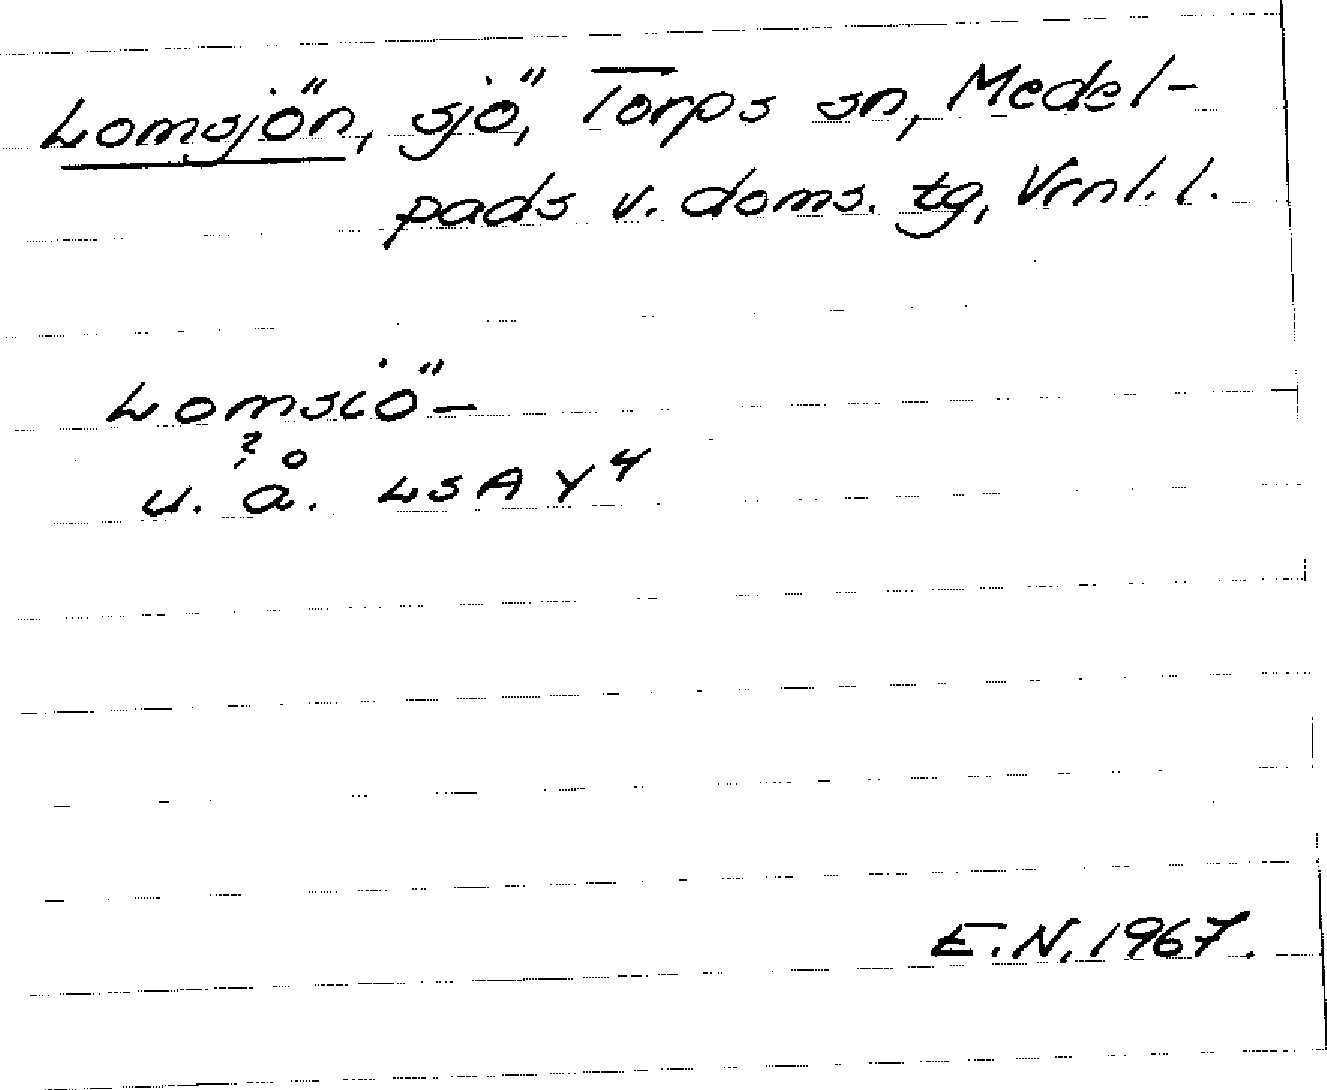 Lomsjön, sjö, Torps sn, Medel-
pads v. doms. tg, Vrnl. l.
Lomsiö-
u. å. LSA Y4
E.N. 1967.